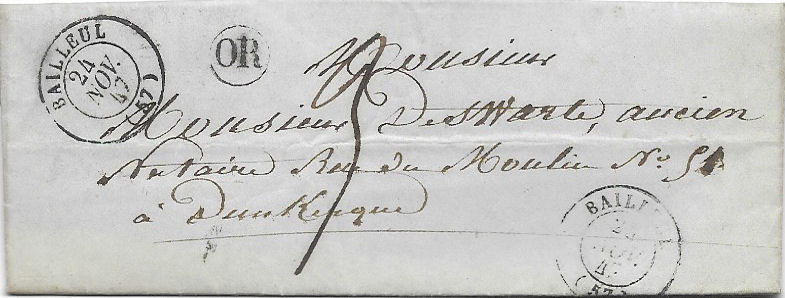 BAILLEUL
24
NOV.
47
(57)
OR
Monsieur
Monsieur DeSwarte, ancien
Notaire Rue du Moulin No. 51
à Dunkerque
BAILLEUL
24
NOV.
47
(57)